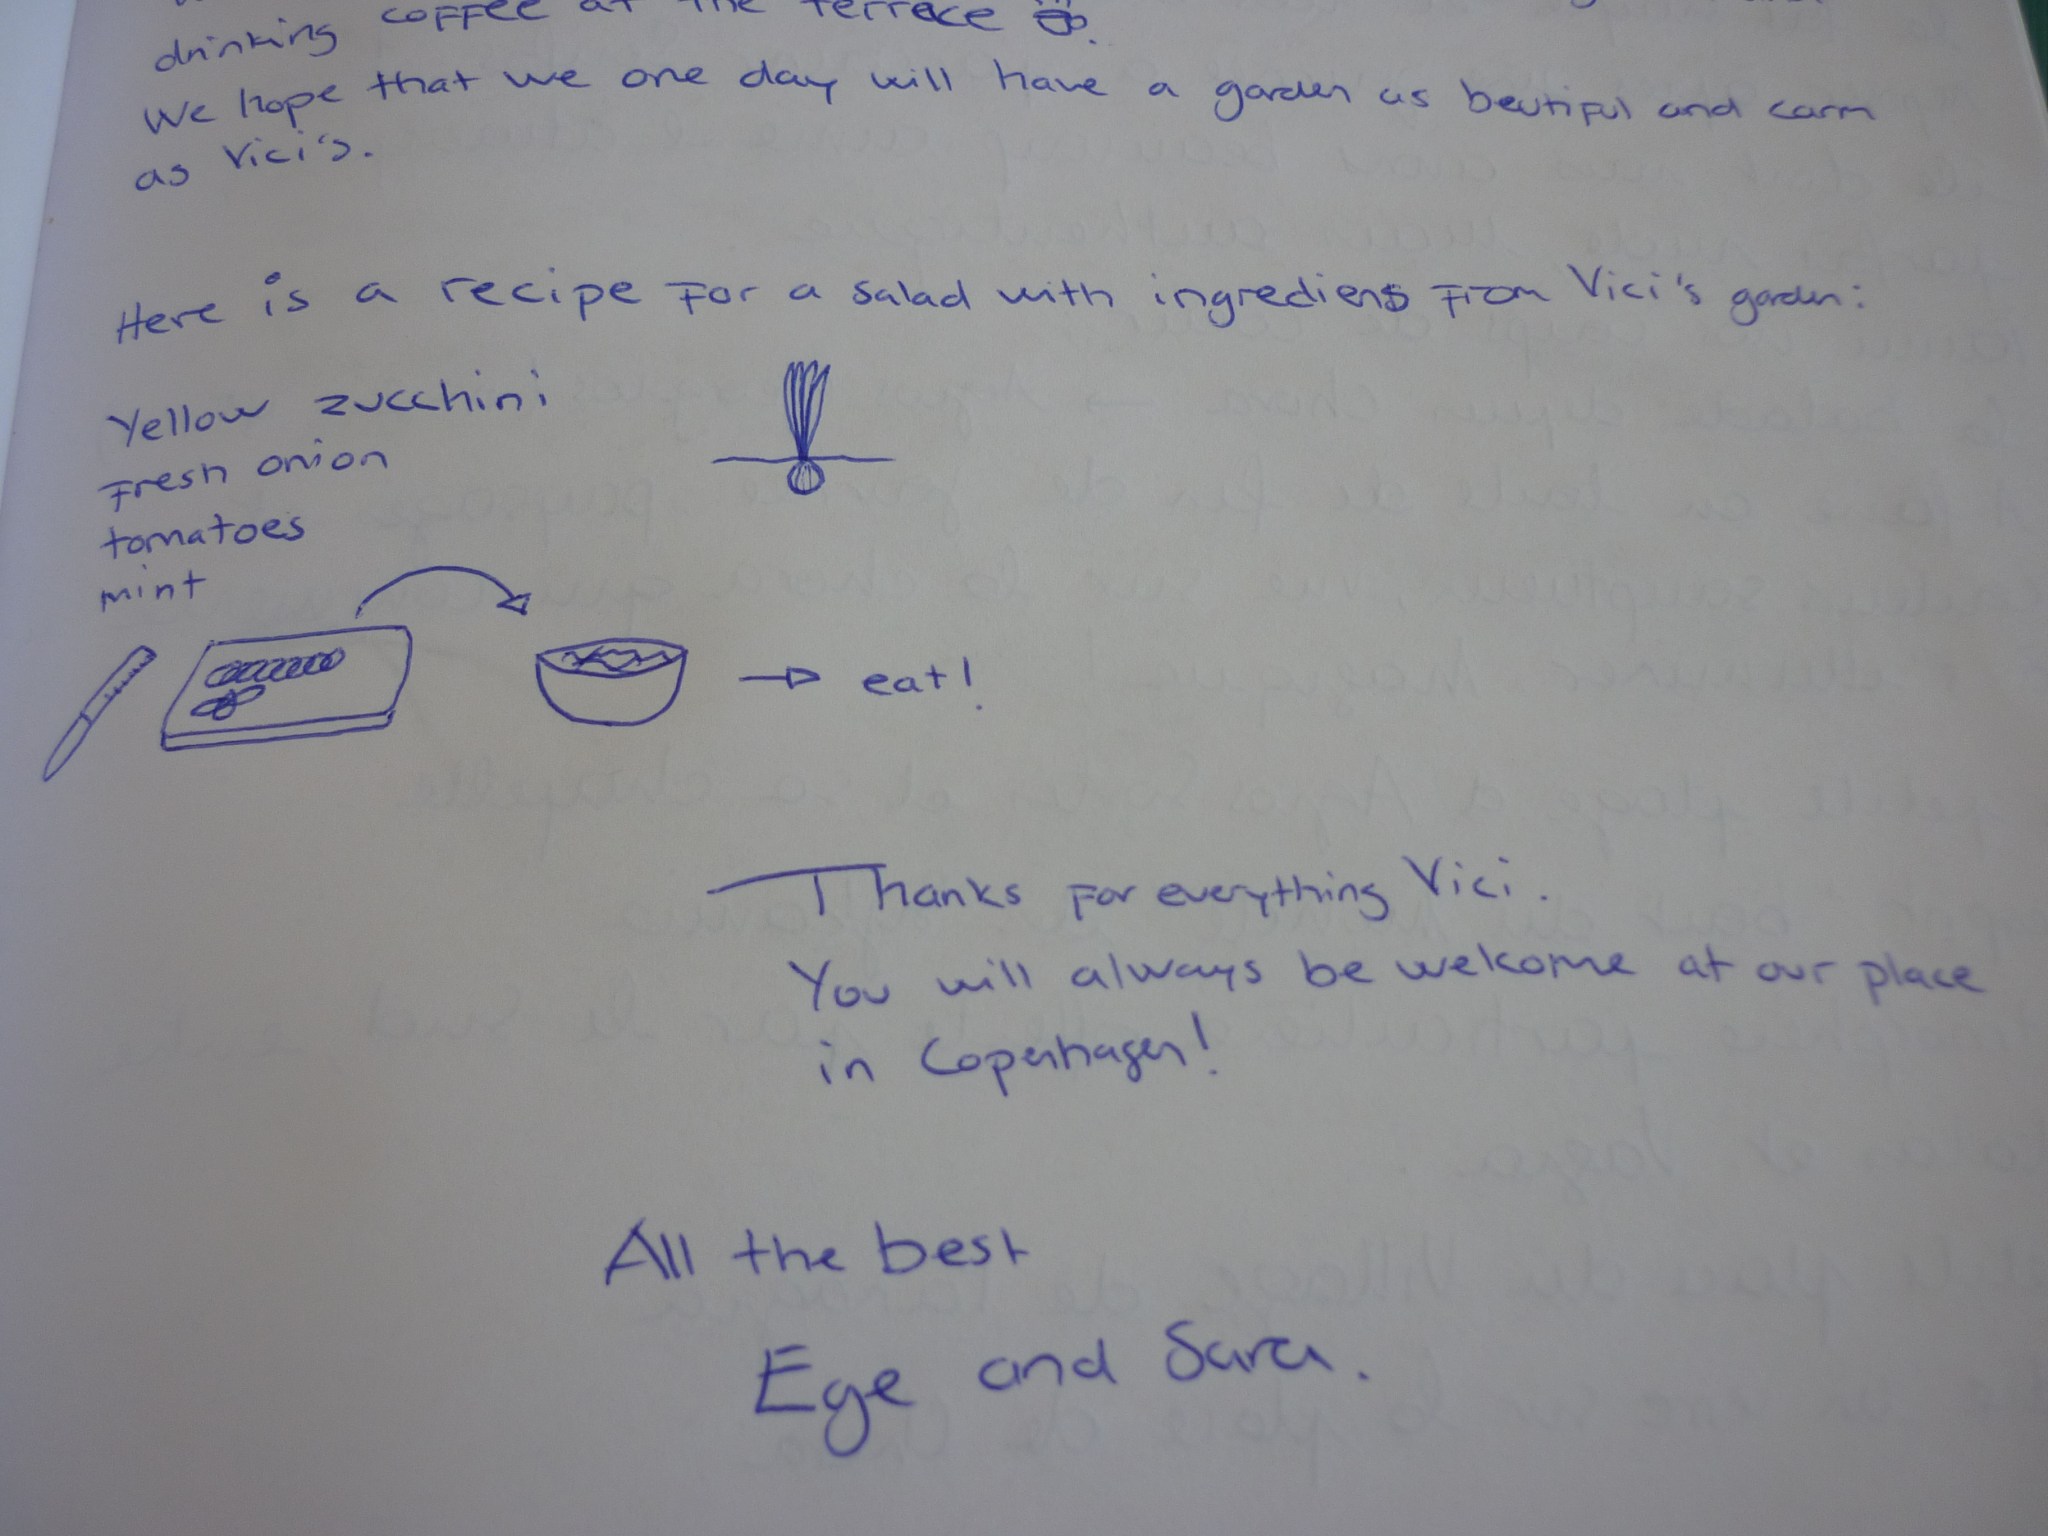 drinking coffee at the terrace
We hope that we one day will have a garden as beutiful and carm
as Vici's.
Here is a recipe for a salad with ingrediens from Vici's garden:
Yellow zucchini
Fresh onion
tomatoes
mint
eat!
Thanks for everything Vici.
You will always be welcome at our place
in Copenhagen!
All the best
Ege and Sara.